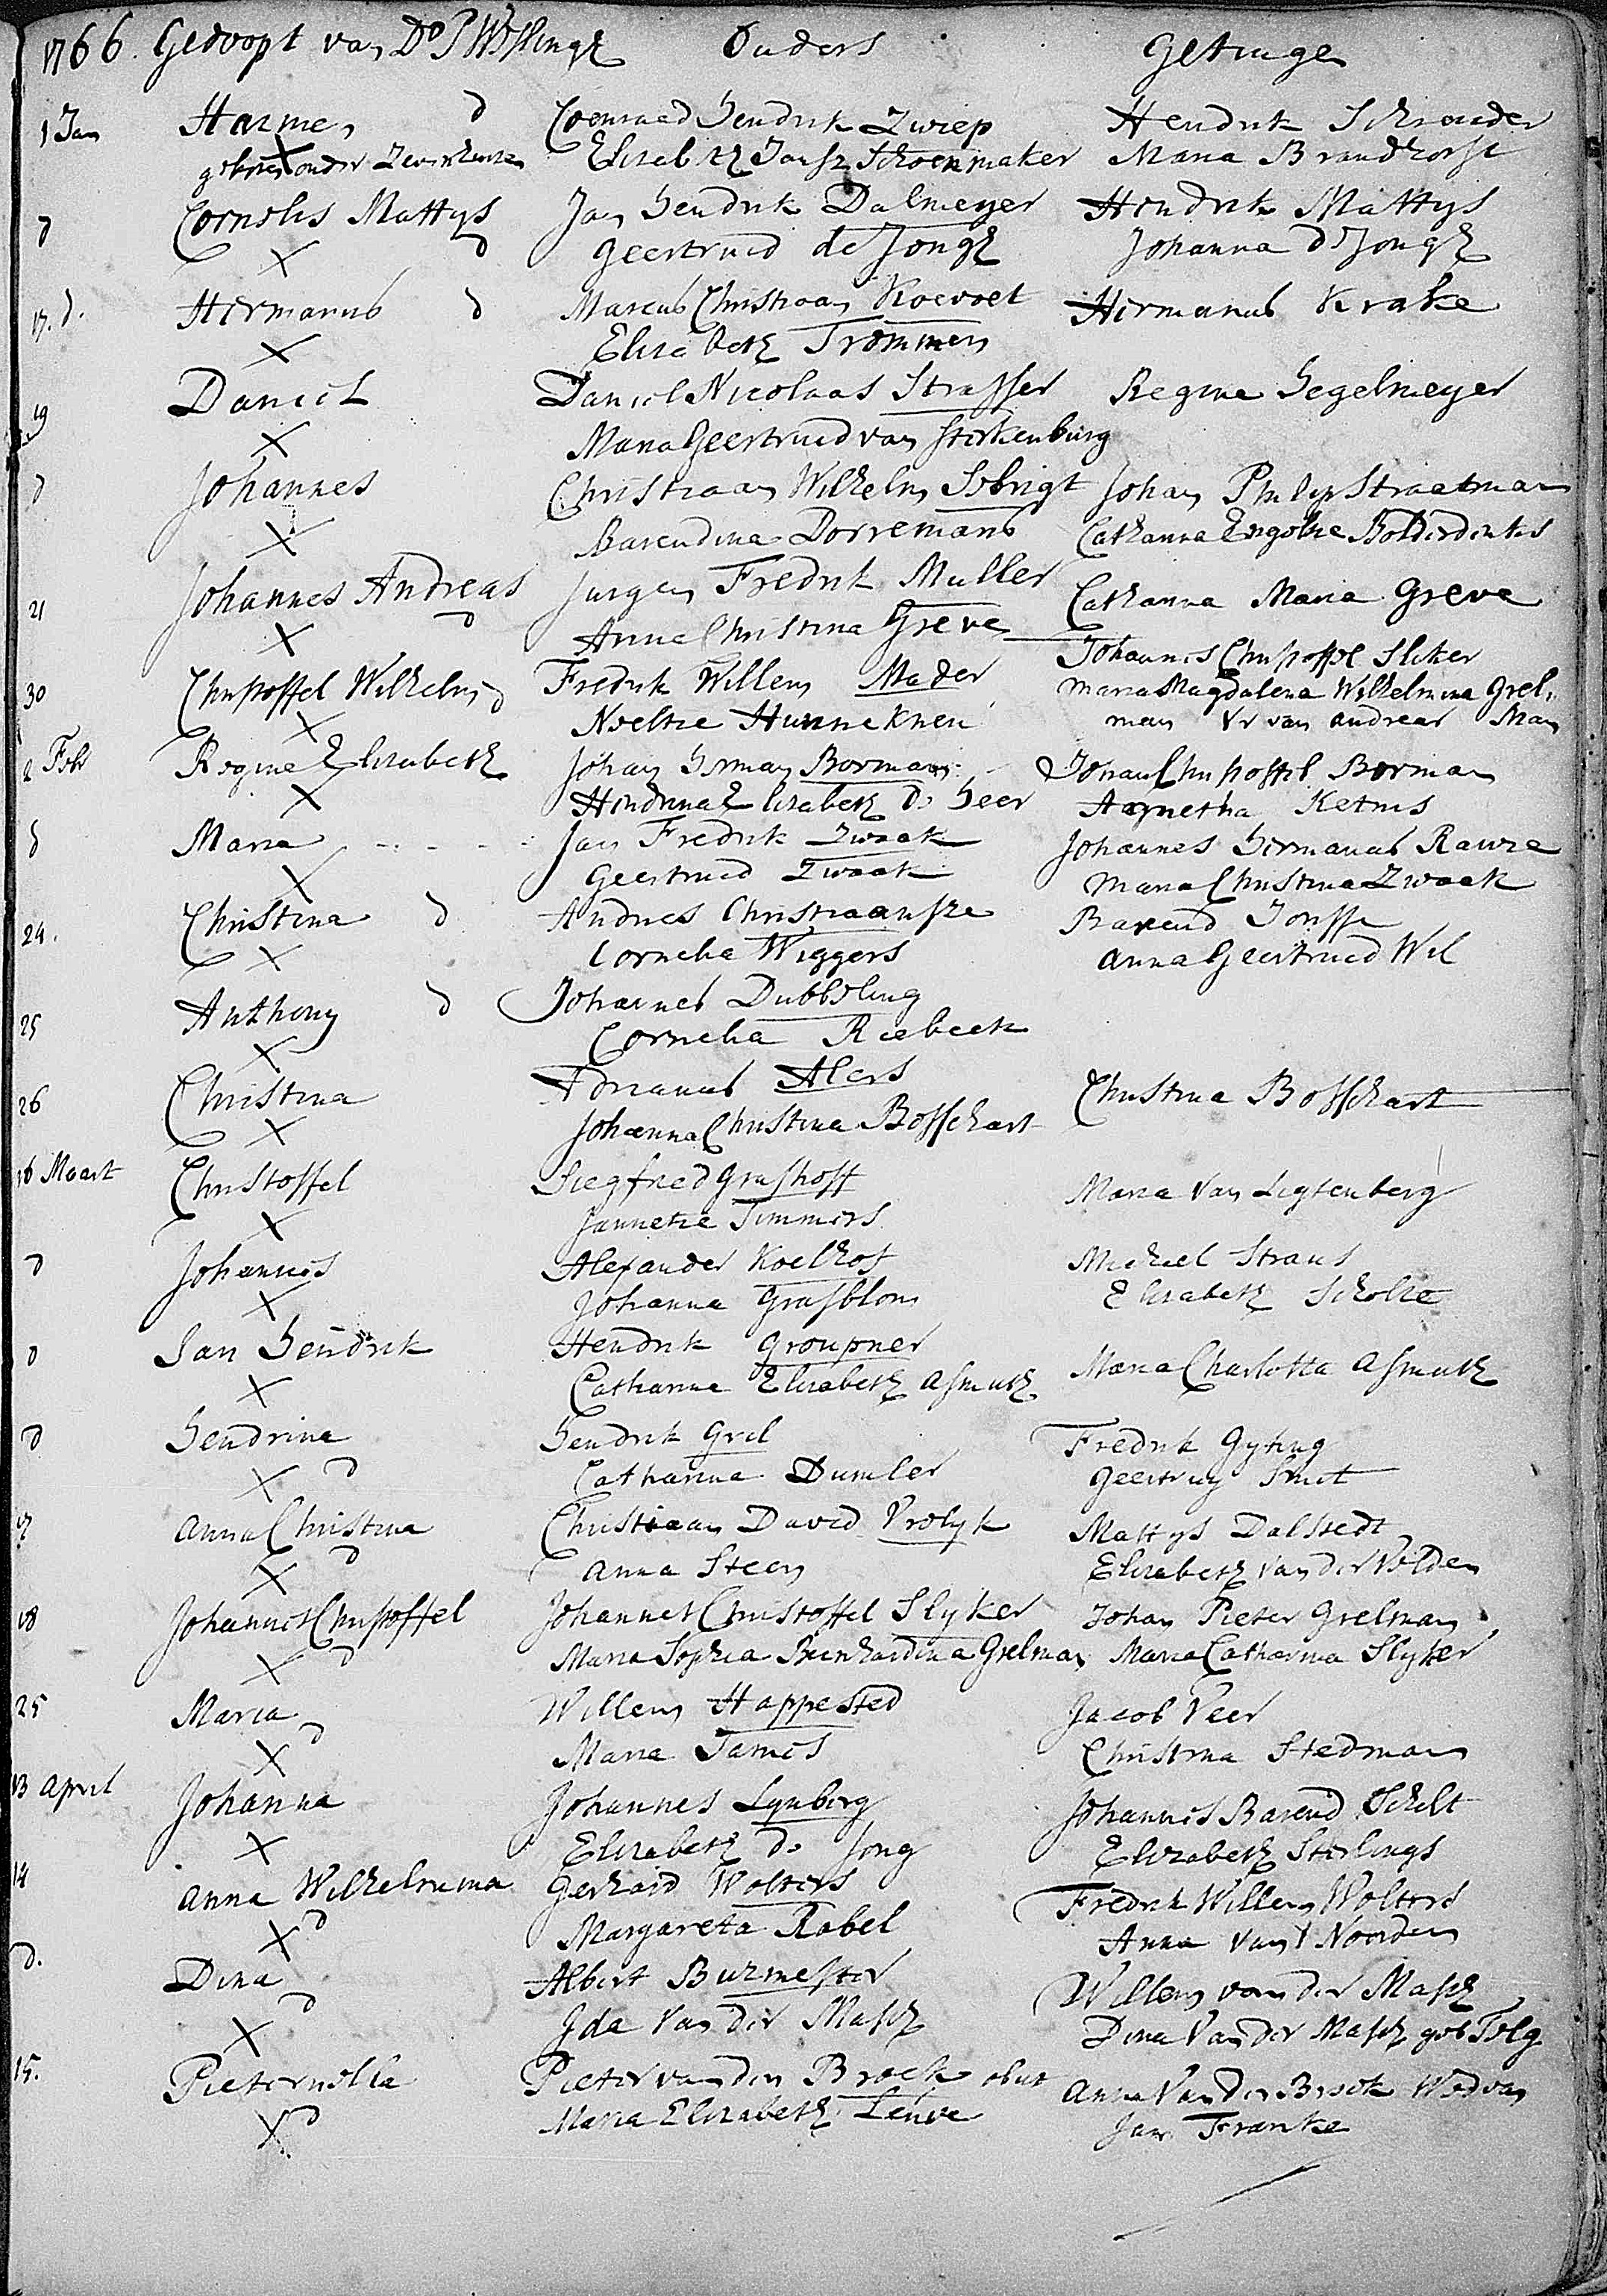 1766. Gedoopt van Do P Wesslingh Ouders Getuige
1 Jan Harmen d Coenraed Hendrik Zwiep Hendrik Schreuder
geboren onder Elisabeth Jansz Schoenmaker Maria Brandhorst
d Cornelis Mattys Jan Hendrik Dalmeyer Hendrik Mattys
X d Geertruid de Jongh Johanna de Jongh
17. d. Hermanus d Marcus Christiaan Koevoet Hermanus Krake
X Elizabeth Trommen
19 Daniel Daniel Nicolaas Strasser Regina Segelmeyer
X Maria Geertruid van Sterkenburg
d Johannes Christiaan Wilhelm Sobrigt Johan Philip Straatman
X Barendina Dorremans Catharina Engeltie
21 Johannes Andreas Jurgen Fredrik Muller Catharina Maria Greve
X d Anna Christina Greve
30 Christoffel Wilhelm d Fredrik Willem Mader Johannes Christoffel Sliker
X Neeltie Hunneknen Maria Magdalena Wilhelmina Grel-
man Vr van Andreas Man
2 Febr Regina Elizabeth Johan Herman Borman Johan Christoffel Borman
X Hendrina Elizabeth de Heer Agnetha Ketnis
d Maria Jan Fredrik Zwaak Johannes Hermanus Rauze
X Geertruid Zwaak Maria Christina Zwaak
24. Christina d Andries Christiaansze Barend Jonsse
X Cornelia Wiggers Anna Geertruid Wil
25 Anthony d Johannes Dubbeling
X Cornelia Riebeek
26 Christina Adrianus Alers Christina Bosschart
X Johanna Christina Bosschart
16 Maart Christoffel Siegfried Grashoff Maria van Ligtenberg
X Jannetie Timmers
d Johannes Alexander Koelhof Michiel Straus
X Johanna Grasblom Elizabeth Scholte
d Jan Hendrik Hendrik Groupner Maria Charlotta Asmuth
X Catharina Elizabeth Asmuth
d Hendrina Hendrik Grel Fredrik Gyting
X d Catharina Dumler Geertruy Smit
17 Anna Christina Christiaan David Vrolyk Mattys Dalstedt
X d Anna Steen Elizabeth van der Velden
18 Johannes Christoffel Johannes Christoffel Slyker Johan Pieter Grelman
X d Maria Sophia Bernhardina Grelman Maria Catharina Slyker
25 Maria Willem Happested Jacob Veer
X d Maria James Christina Stedman
13 April Johanna Johannes Lynberg Johannes Barend Schilt
X Elizabeth de Jong Elizabeth Sterlings
14 Anna Wilhelmina Gerhard Wolters Fredrik Willem Wolters
X d Margareta Rabel Anna van Noorden
d. Dina Albert Burmester Willem van der Masch
X d Ida van der Masch Dina van der Masch geb Telg
15. Pieternella Pieter van den Broek obiit Anna van den Broek Wed van
X d Maria Elizabeth Leuve Jan Franke